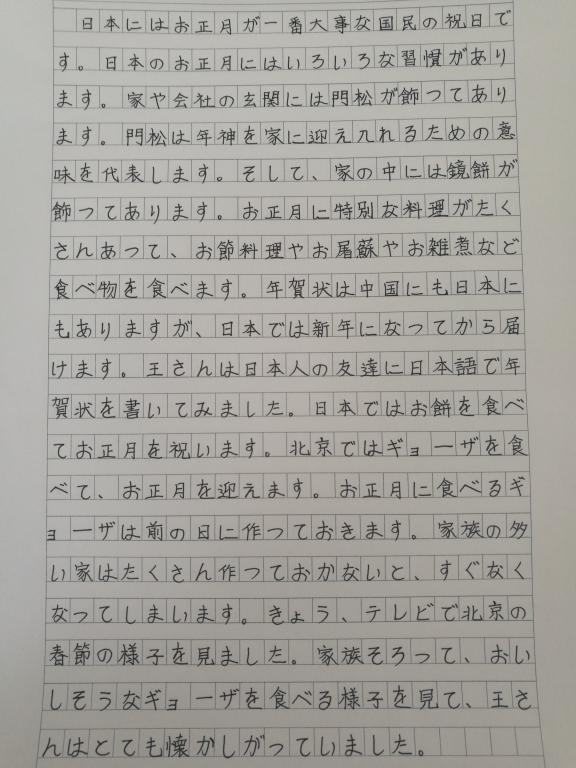 日本にはお正月が一番大事な国民の祝日で
す。日本のお正月にはいろいろな習慣があり
ます。家や会社の玄関には門松が飾ってあり
ます。門松は年神を家に迎え入れるための意
味を代表します。そして、家の中には鏡餅が
飾ってあります。お正月に特別な料理がたく
さんあって、お節料理やお屠蘇やお雑煮など
食べ物を食べます。年賀状は中国にも日本に
もありますが、日本では新年になってから届
けます。王さんは日本人の友達に日本語で年
賀状を書いてみました。日本ではお餅を食べ
てお正月を祝います。北京ではギョーザを食
べて、お正月を迎えます。お正月に食べるギ
ョーザは前の日に作っておきます。家族の多
い家はたくさん作っておかないと、すぐなく
なってしまいます。きょう、テレビで北京の
春節の様子を見ました。家族そろって、おい
しそうなギョーザを食べる様子を見て、王さ
んはとても懐かしがっていました。